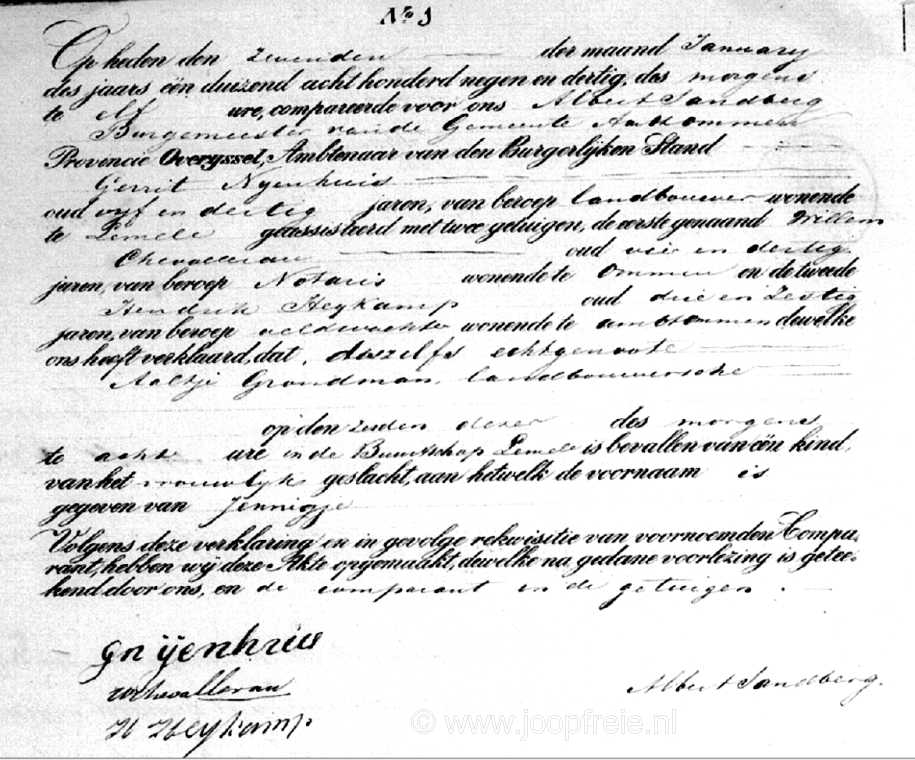 No 1
Op heden den zevenden der maand January
des jaars één duizend acht honderd negen en dertig, des morgens
te elf ure, compareerde voor ons Albert Sandberg
Burgemeester van de Gemeente Ambtommen
Provincie Overyssel, Ambtenaar van den Burgerlyken Stand
Gerrit Nyenhuis
oud vyf en dertig jaren, van beroep landbouwer wonende
te Lemele geassisteerd met twee getuigen, de eerste genaamd Willem
Chevalleran oud vier en dertig
jaren, van beroep Notaris wonende te Ommen en de tweede
Hendrik Heykamp oud drie en zestig
jaren, van beroep veldwachter wonende te ambtommen dewelke
ons heeft verklaard, dat, deszelfs echtgenoote
Aaltje Grondman, landbouwersche
op den zesden dezer des morgens
te acht ure in de Buurtschap Lemele is bevallen van één kind,
van het vrouwlyk geslacht, aan hetwelk de voornaam is
gegeven van Jennigje
Volgens deze verklaring en in gevolge rekwisitie van voornoemden Compa,
rant, hebben wy deze Akte opgemaakt, dewelke na gedane voorlezing is getee-
kend door ons, en de comparant en de getuigen.
G nijenhuis
WChevalleran
Albert Sandberg.
H Heykamp
© www.joopfreie.nl